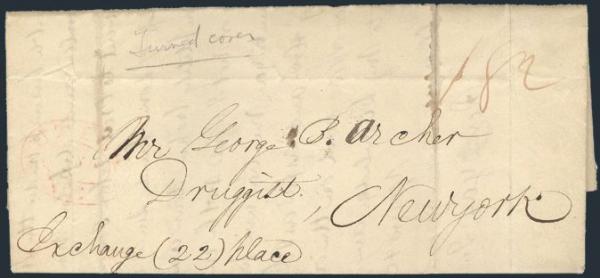 Turned cover
18 2
Mr George B. Archer
Druggist. , Newyork.
Exchange (22) place